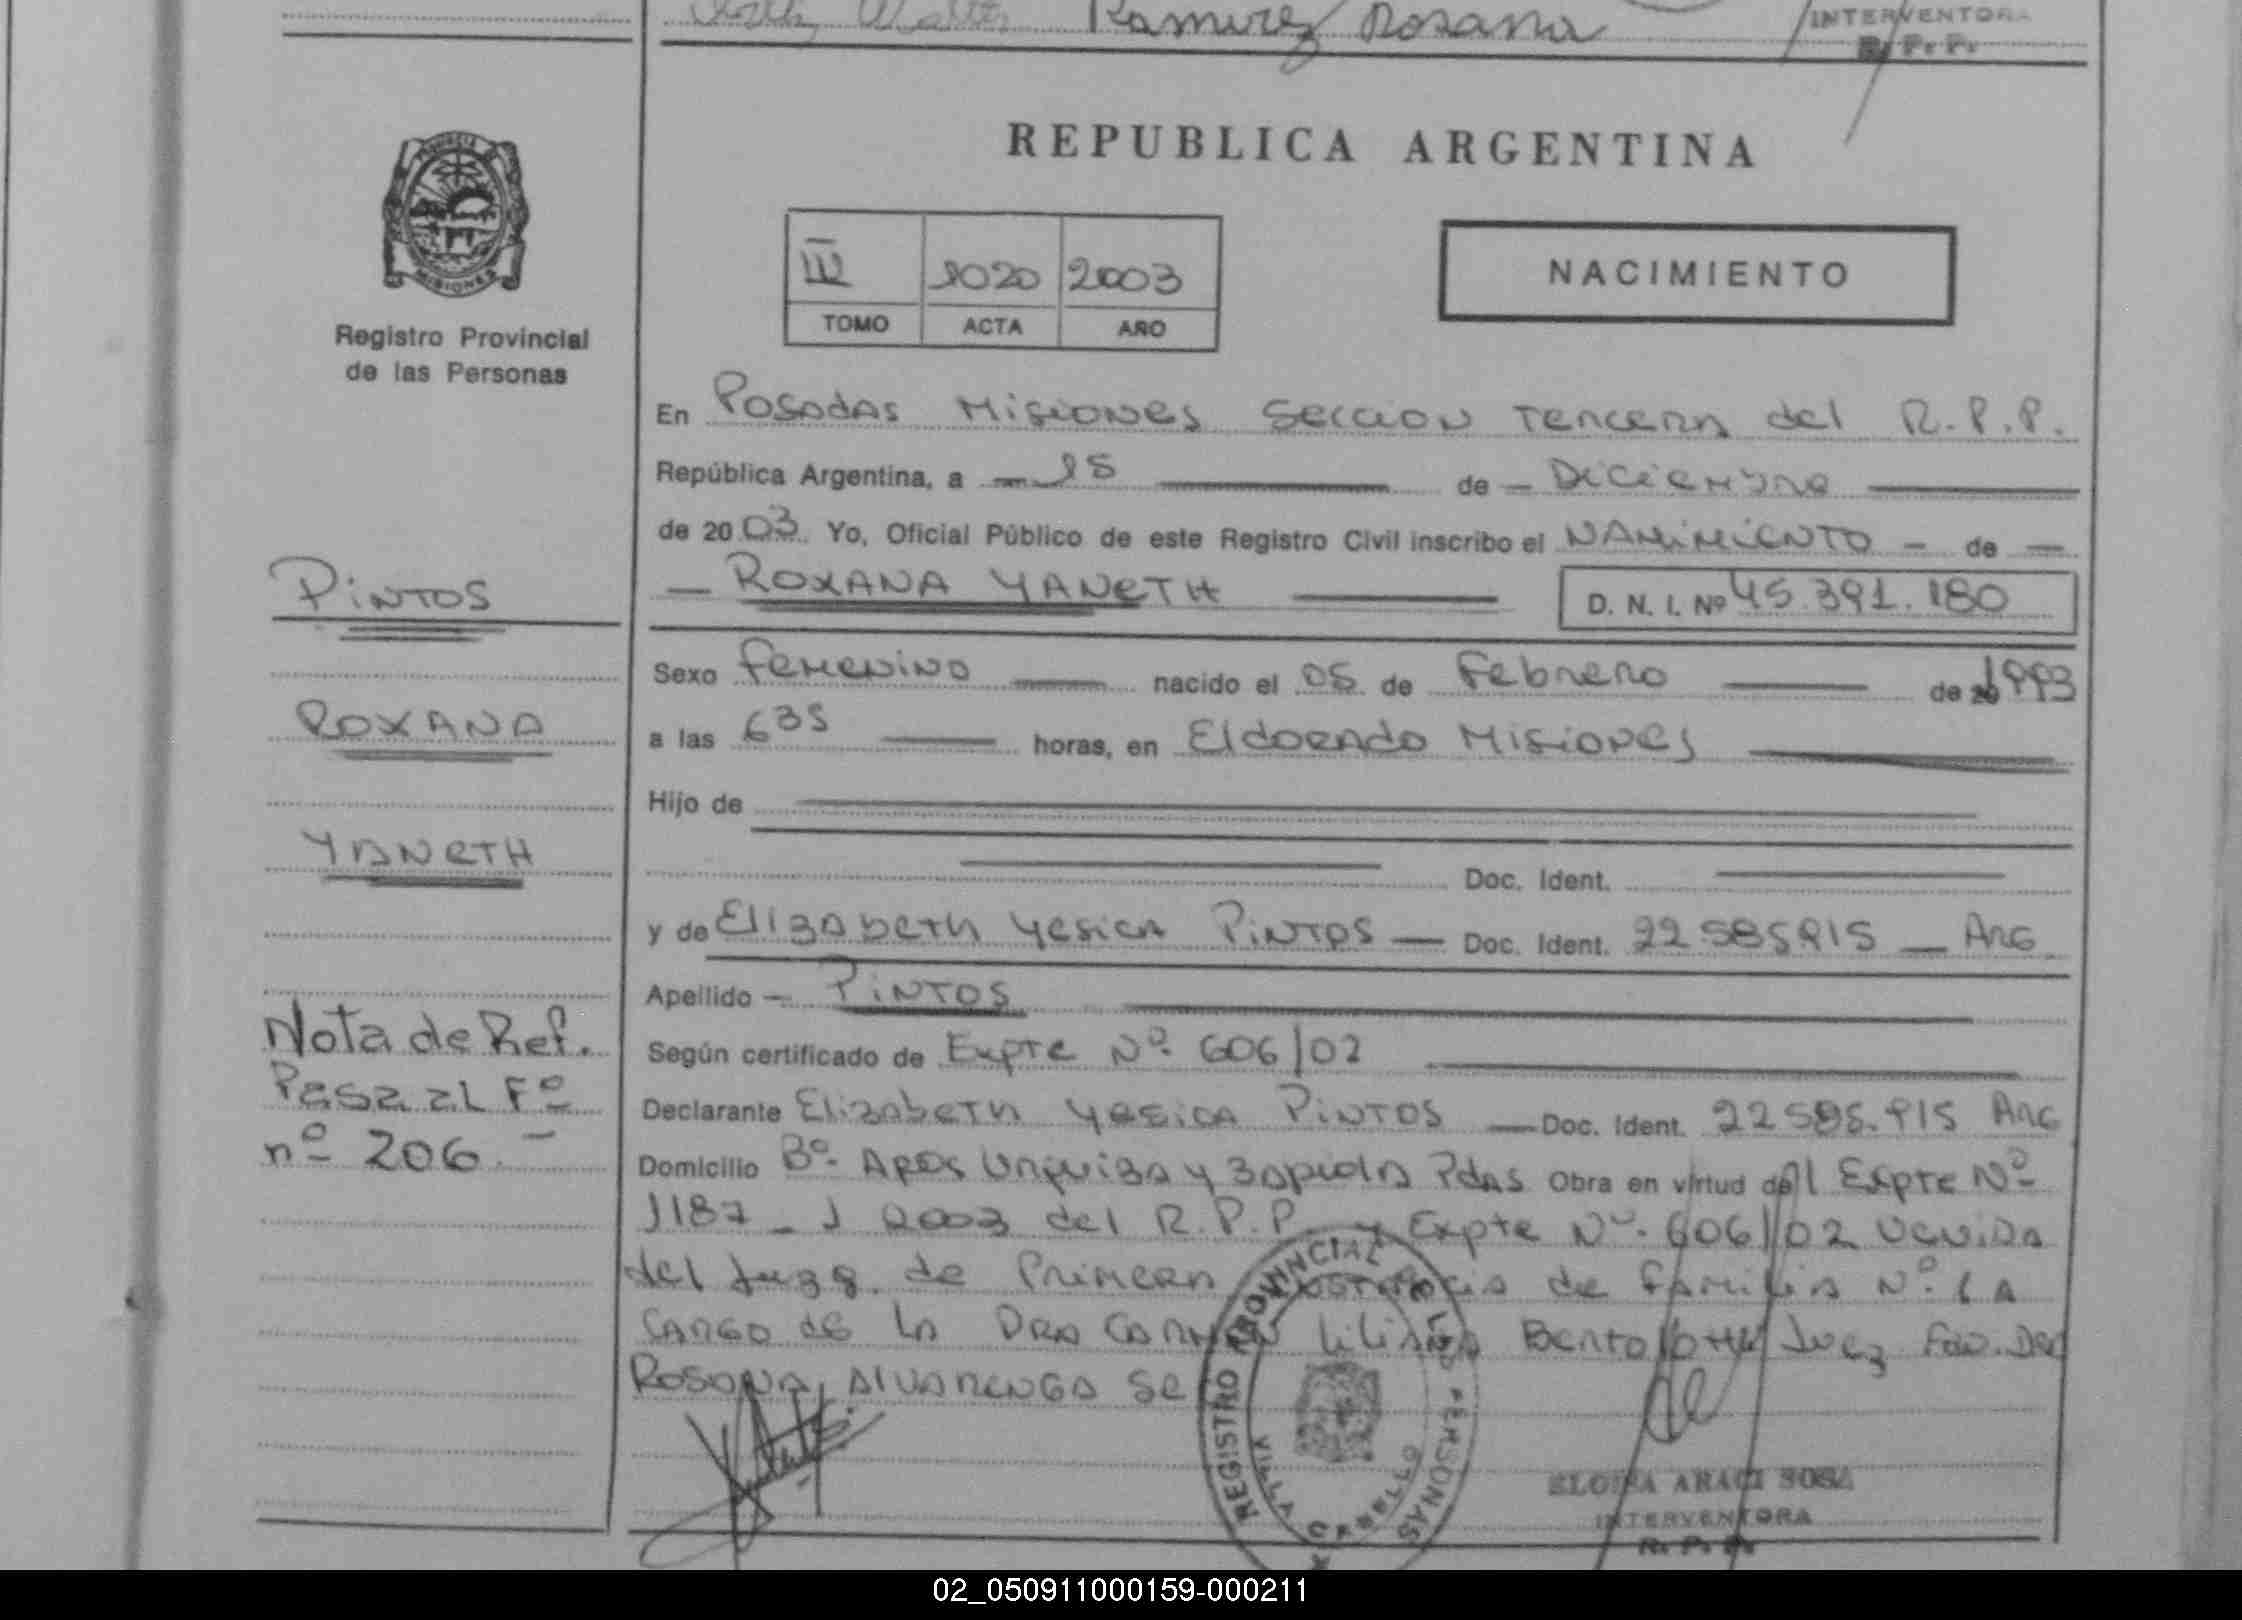 Ramirez Rosana
INTERVENTORA
R. P. P.
PROVINCIA DE
MISIONES
Registro Provincial
de las Personas
REPUBLICA ARGENTINA
III 1020 2003
TOMO ACTA AÑO
NACIMIENTO
En Posadas Misiones Seccion Tercera del R.P.P.
República Argentina, a 15 de Diciembre
de 2003. Yo, Oficial Público de este Registro Civil inscribo el NACIMIENTO - de
ROXANA YANETH D. N. I. Nº 45.391.180
Sexo Femenino nacido el 05 de Febrero de 1993
a las 635 horas, en Eldorado Misiones
Hijo de
Doc. Ident.
y de Elizabeth Yesica Pintos Doc. Ident. 22.585915 Arg
Apellido PINTOS
Según certificado de Expte Nº 606/02
Declarante Elizabeth Yesica Pintos Doc. Ident. 22585.915 Arg
Domicilio Bº Apos Urquiza y Zapiola Pdas Obra en virtud del Expte Nº
1187 - J 2003 del R.P.P. y Expte Nº 606/02 Venida
del Juzg. de Primera Instancia de Familia Nº 1 A
cargo de la Dra Carmen Liliana Juez Fdo. Dra
Rosana Alvarenga Se
PINTOS
ROXANA
YANETH
Nota de Ref.
Pasa al Fº
nº 206.-
REGISTRO PROVINCIAL DE LAS PERSONAS
VILLA CABELLO
ELOISA ARACI SOSA
INTERVENTORA
R. P. P.
02_050911000159-000211